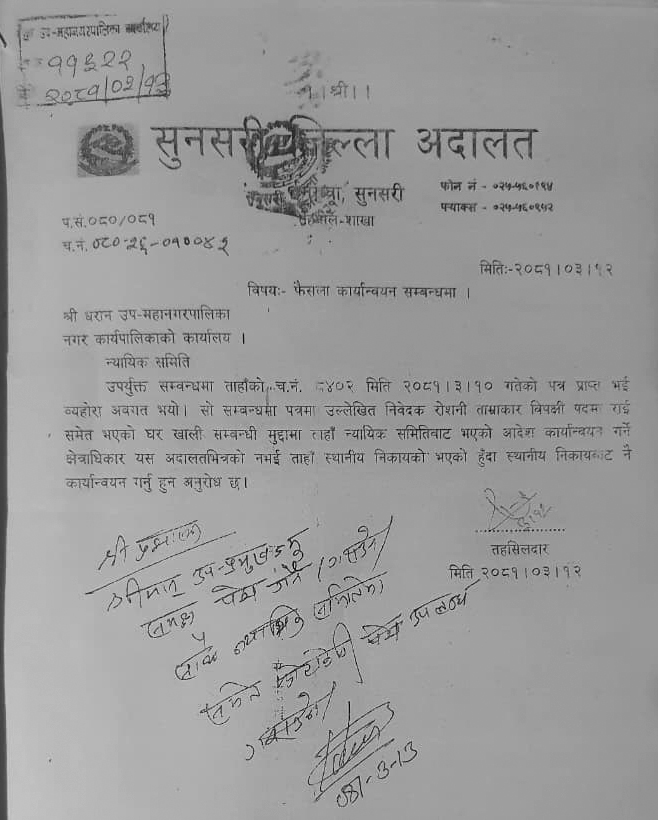 उप-महानगरपालिका
११६२२
२०८१/०३/१३
।।श्री।।
सुनसरी जिल्ला अदालत
सुनसरी
सुनसरी
फोन नं - ०२५-५६०१९४
फ्याक्स - ०२५-५६०९५२
तहसिल-शाखा
प.सं.०८०/०८१
च.नं. ०८०-२६-०१००४२
मितिः-२०८१।०३।१२
विषयः- फैसला कार्यान्वयन सम्बन्धमा ।
श्री धरान उप-महानगरपालिका
नगर कार्यपालिकाको कार्यालय ।
न्यायिक समिति
उपर्युक्त सम्बन्धमा ताहाँको च.नं. ८४०२ मिति २०८१।३।१० गतेको पत्र प्राप्त भई
व्यहोरा अवगत भयो। सो सम्बन्धमा पत्रमा उल्लेखित निवेदक रोशनी ताम्राकार विपक्षी पदम राई
समेत भएको घर खाली सम्बन्धी मुद्दामा ताहाँ न्यायिक समितिबाट भएको आदेश कार्यान्वयन गर्ने
क्षेत्राधिकार यस अदालतभित्रको नभई ताहाँ स्थानीय निकायको भएको हुँदा स्थानीय निकायबाट नै
कार्यान्वयन गर्नु हुन अनुरोध छ।
तहसिलदार
मिति २०८१।०३।१२
श्रीमान् उप-प्रमुखज्यू
समक्ष पेश गर्ने
उपलब्ध
081-3-13